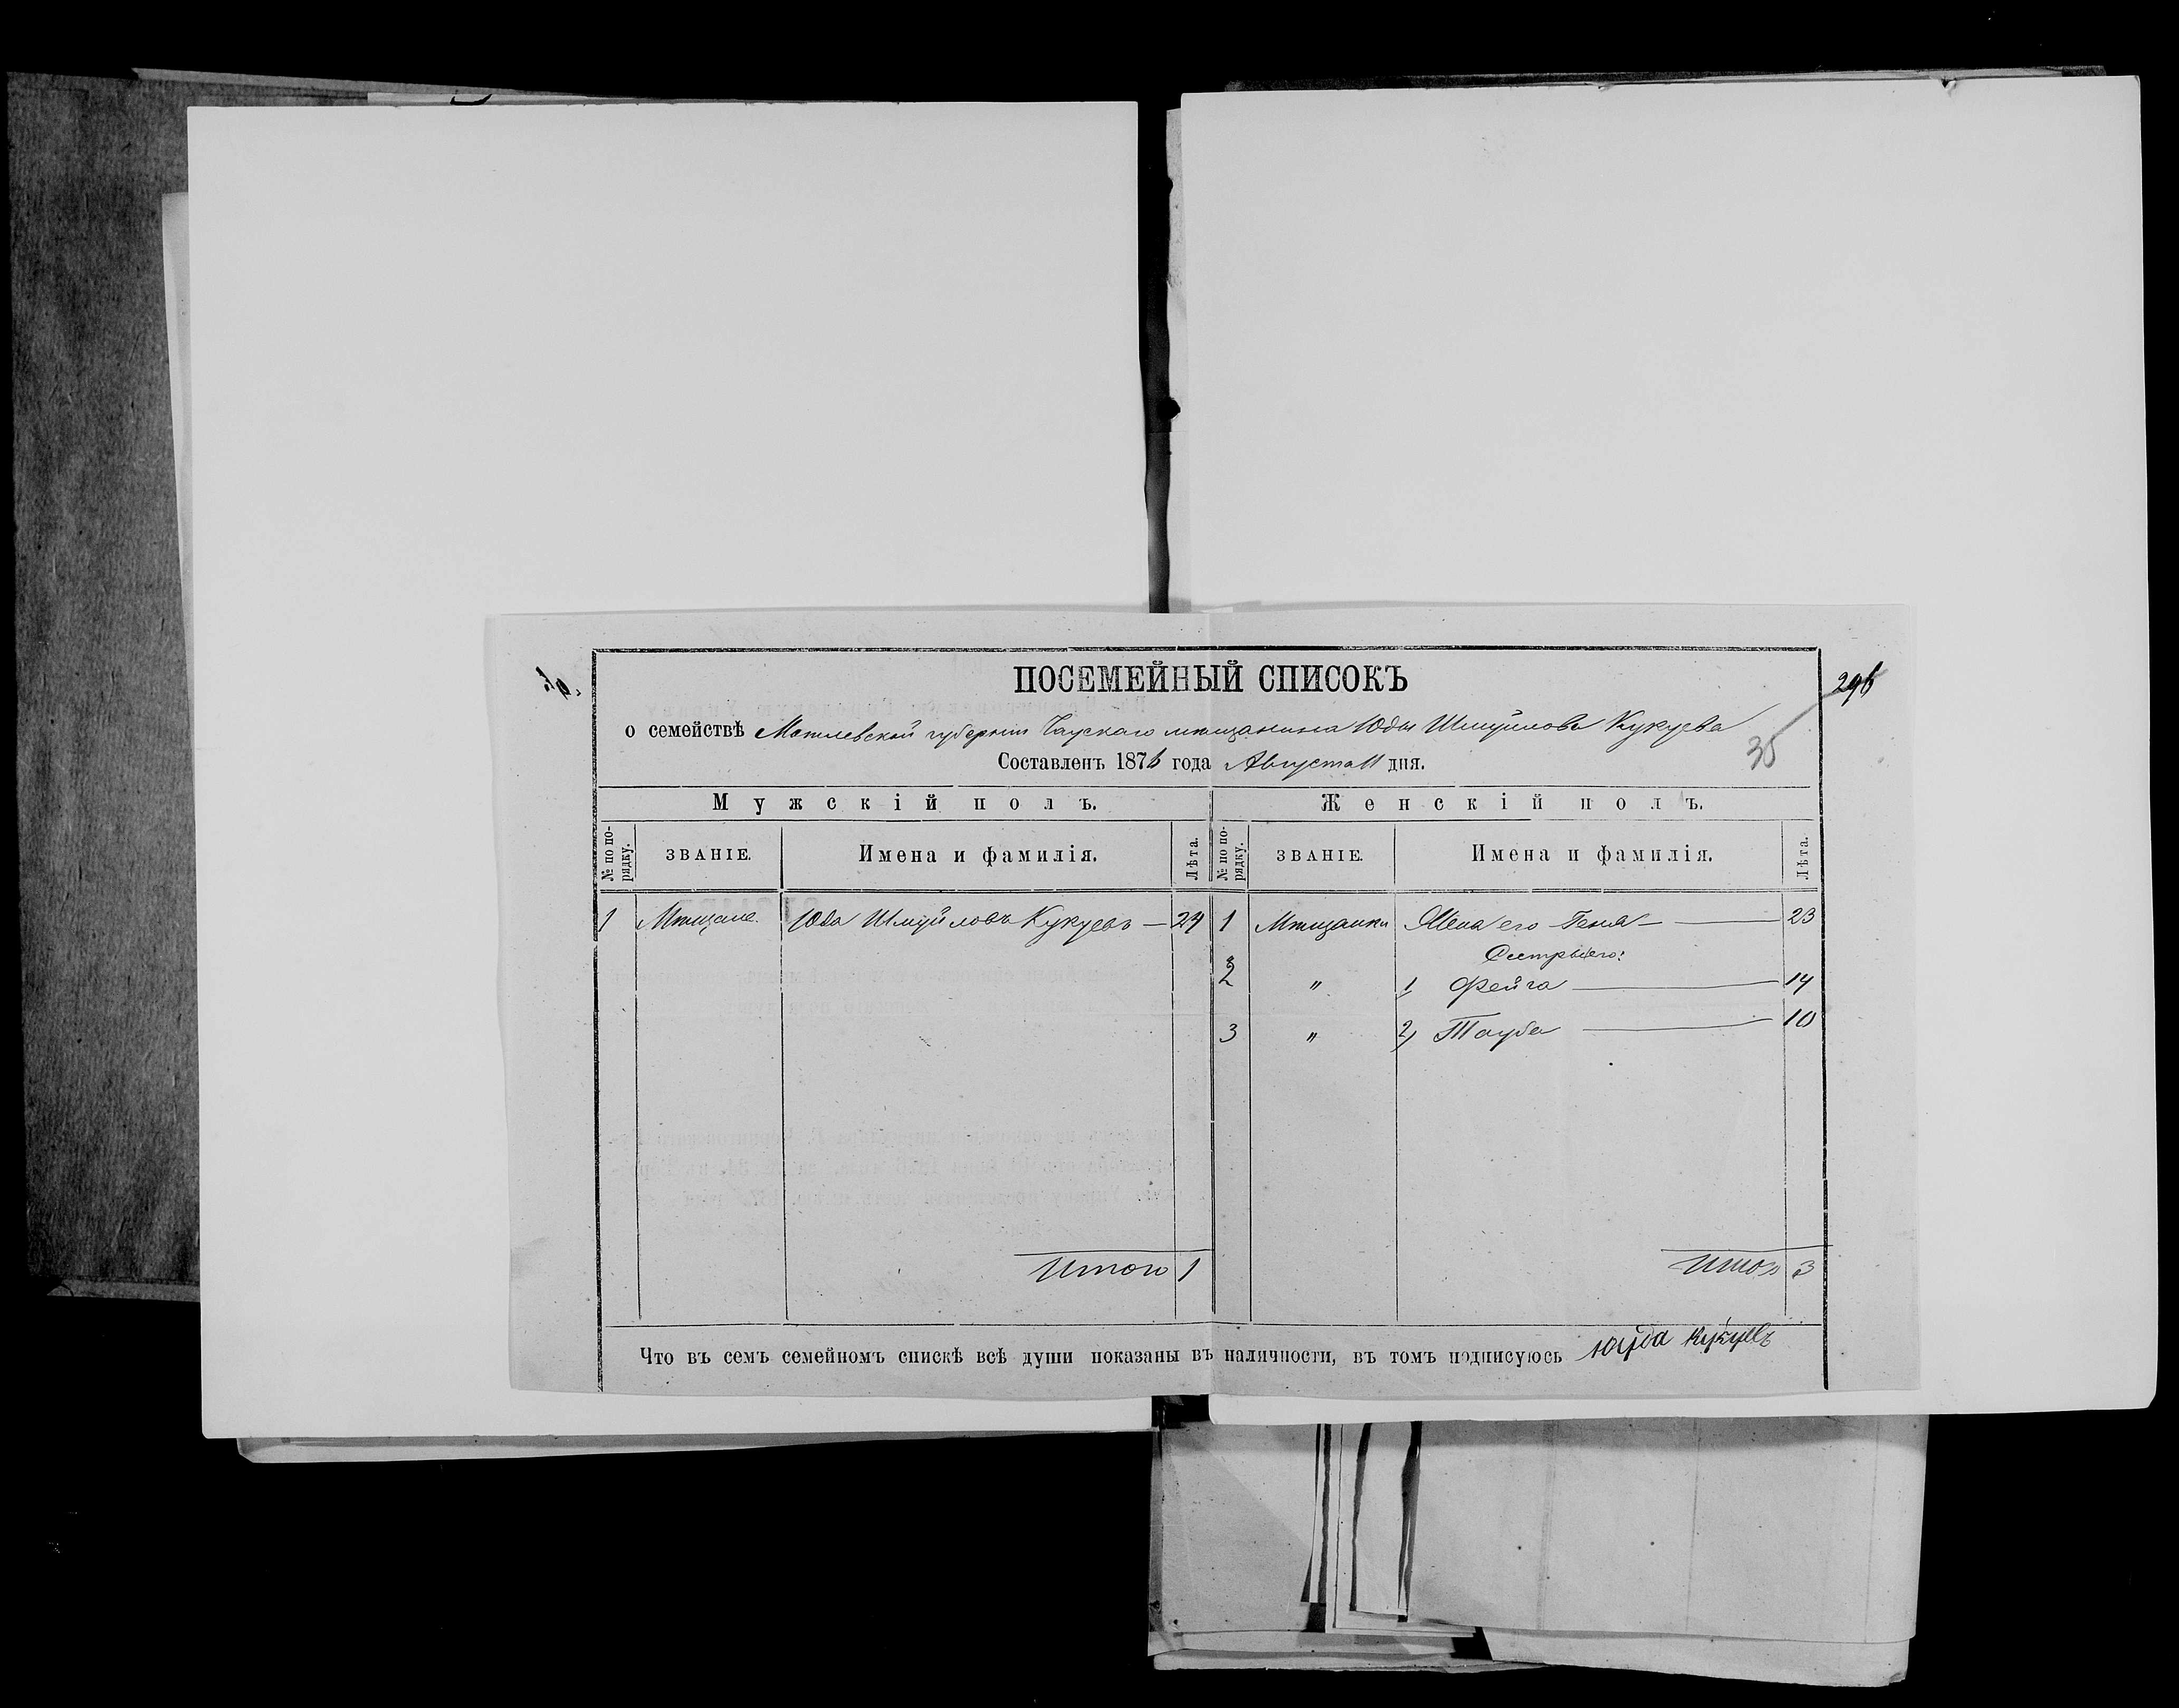 ПОСЕМЕЙНЫЙ СПИСОКЪ
296
о семействѣ Могилевской губернии Чаускаго мѣщанина Юды Шмуйлова Кукуева
35
Составленъ 1876 года Августа 11 дня.
Мужскій полъ. Женскій полъ.
№ по порядку. ЗВАНІЕ. Имена и фамилія. Лѣта. № по порядку. ЗВАНІЕ. Имена и фамилія. Лѣта.
1 Мѣщане. Юда Шмуйловъ Кукуевъ — 24 1 Мѣщанки Жена его Геня — 23
Сестры его:
2 " 1 Фейга — 14
3 " 2) Тауба — 10
Итого 1 Итого 3
Что въ семъ семейномъ спискѣ всѣ души показаны въ наличности, въ томъ подписуюсь Юуда Кукуевъ